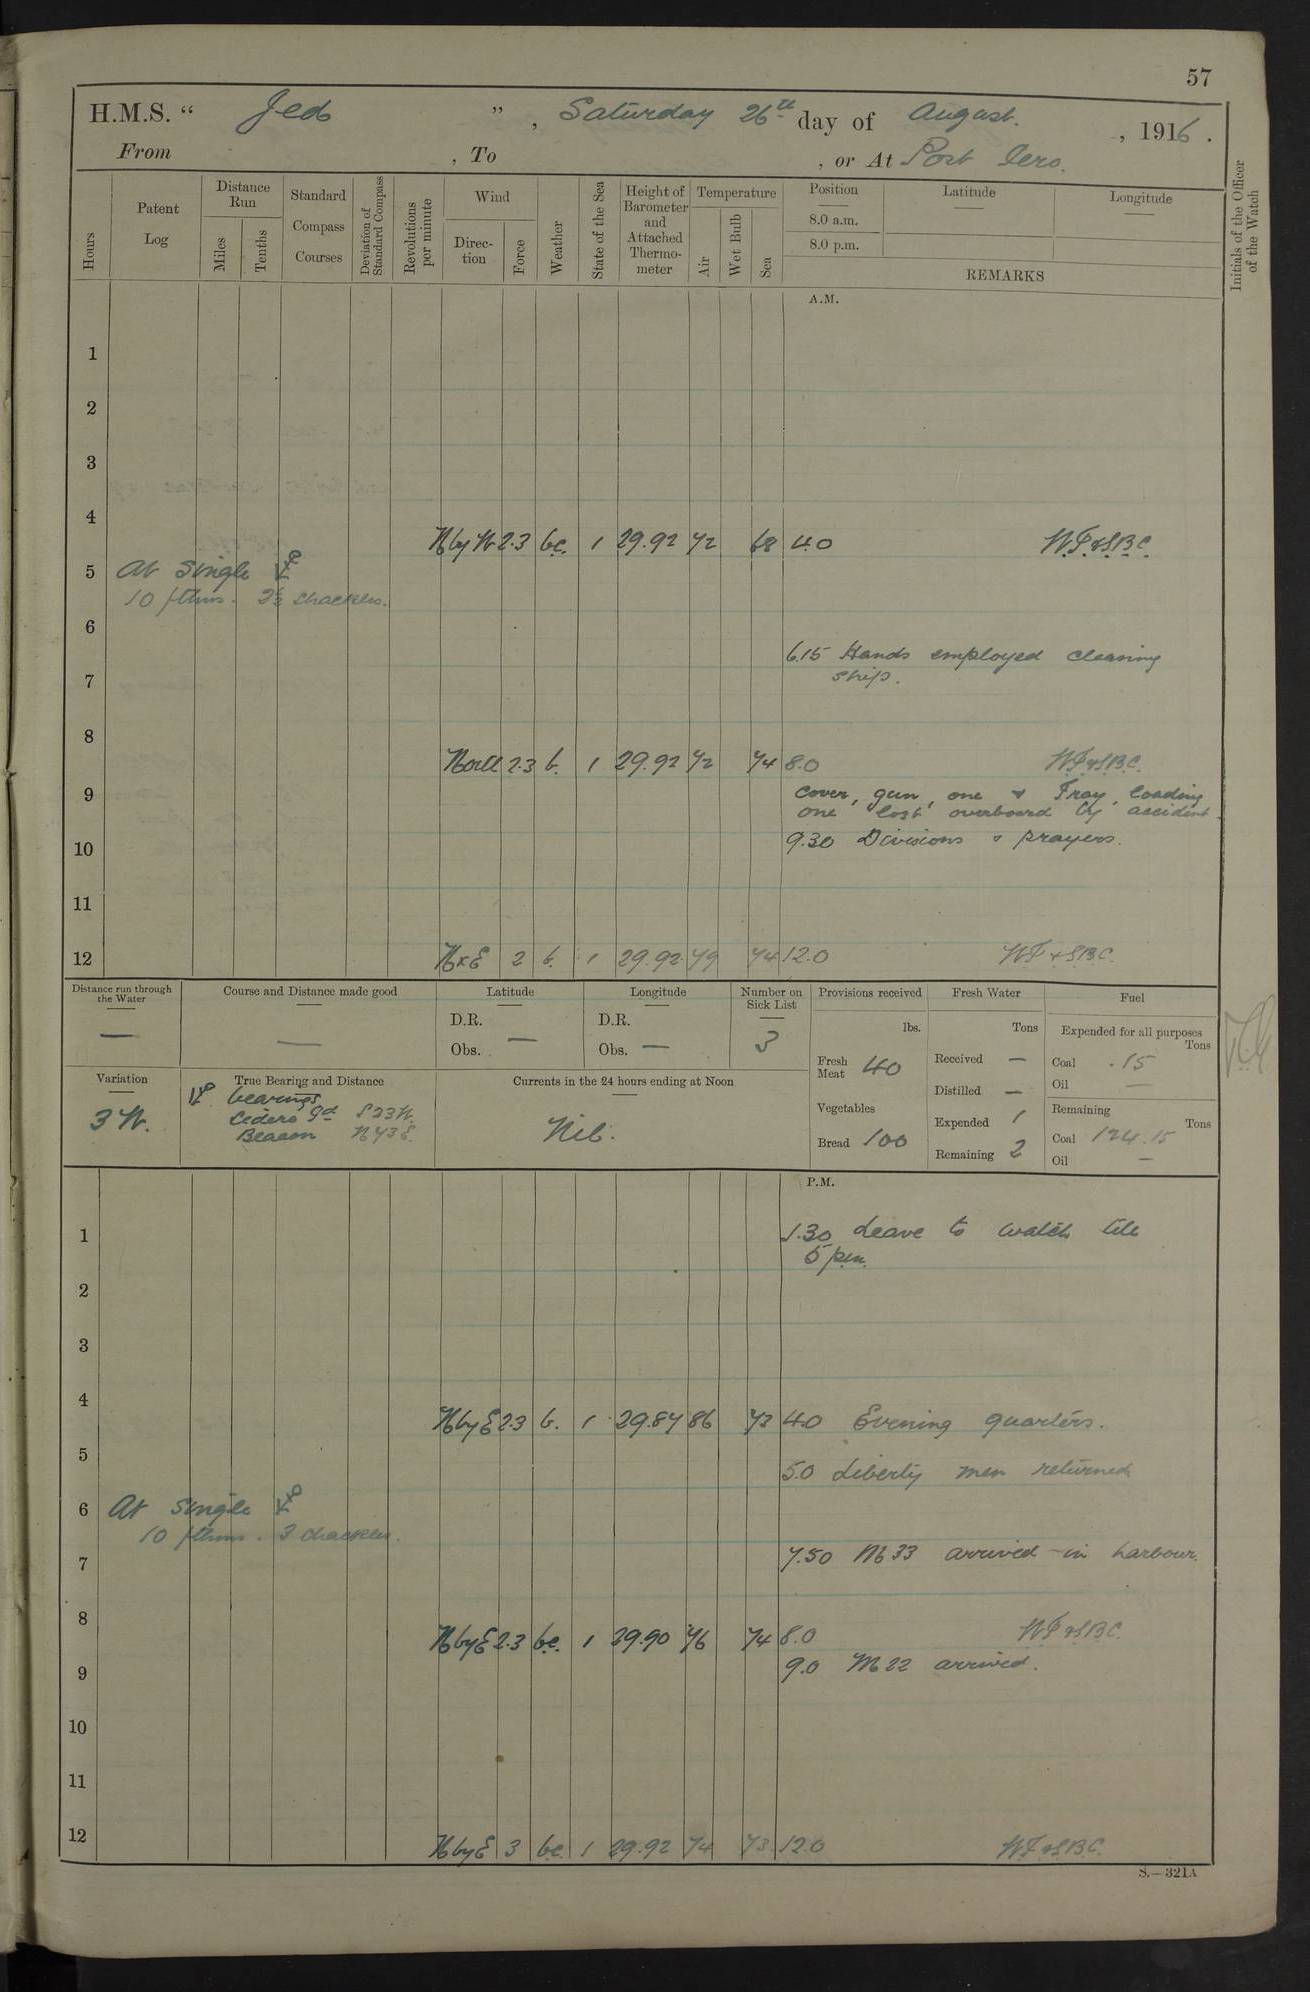 57
H.M.S. “ Jed ” , Saturday 26th day of August. , 1916 .
From , To , or At Port Iero.
Hours
Patent Log
Distance Run
Miles
Tenths
Standard Compass Courses
Deviation of Standard Compass
Revolutions per minute
Wind
Direction
Force
Weather
State of the Sea
Height of Barometer and Attached Thermometer
Temperature
Air
Wet Bulb
Sea
Position
8.0 a.m.
8.0 p.m.
Latitude
Longitude
REMARKS
Initials of the Officer of the Watch
A.M.
1
2
3
4
N by W 2.3 bc. 1 29.92 72 68 4.0 W.P. & S.B.C.
5 At Single
10 fthms. 2½ shackles.
6
6.15 Hands employed cleaning
7 ship.
8
North 2.3 b. 1 29.92 72 74 8.0 W.P. & S.B.C.
9 Cover, gun, one & Tray, loading
one lost overboard by accident.
10 9.30 Divisions & prayers.
11
12 N x E 2 b. 1 29.92 79 74 12.0 W.P. & S.B.C.
Distance run through the Water —
Course and Distance made good —
Latitude
D.R.
Obs. —
Longitude
D.R.
Obs. —
Number on Sick List
3
Provisions received
lbs.
Fresh Meat 40
Vegetables
Bread 100
Fresh Water
Tons
Received —
Distilled —
Expended 1
Remaining 2
Fuel
Expended for all purposes
Tons
Coal .15
Oil —
Remaining
Tons
Coal 124.15
Oil —
Variation
3 W.
True Bearing and Distance
bearings
S 23 W.
Beacon N 43 E.
Currents in the 24 hours ending at Noon
Nil.
P.M.
1 1.30 Leave to watch till
5 pm.
2
3
4
N by E 2.3 b. 1 29.87 86 73 4.0 Evening quarters.
5 5.0 Liberty men returned
6 At single
10 fthms. 3 shackles.
7 7.50 M 33 arrived in harbour.
8
N by E 2.3 bc. 1 29.90 76 74 8.0 W.P. & S.B.C.
9 9.0 M 22 arrived.
10
11
12 N by E 3 bc. 1 29.92 74 73 12.0 W.P. & S.B.C.
S.—321A